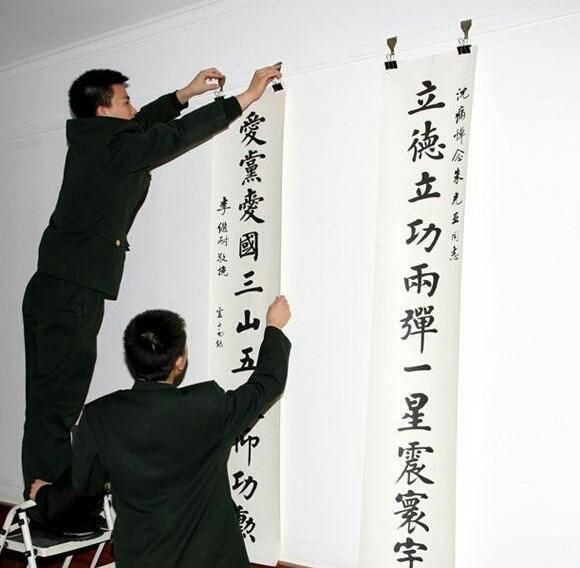 沉痛悼念朱光亚同志
立德立功兩彈一星震寰宇
愛黨愛國三山五 仰功勳
李繼耐敬挽